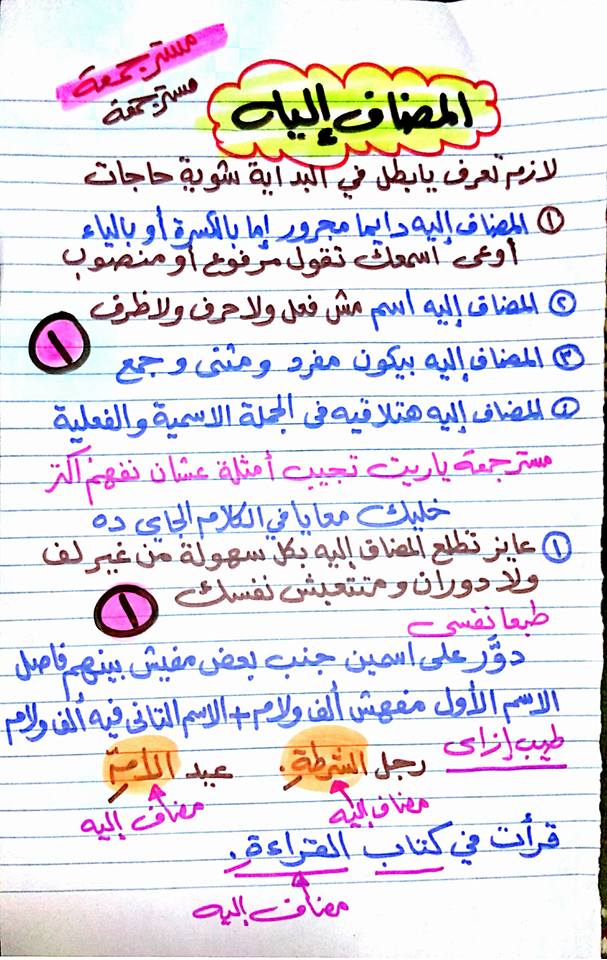 مستر جمعة
مستر جمعة
المضاف إليه
لازم تعرف يابطل في البداية شوية حاجات
١ المضاف إليه دايما مجرور إما بالكسرة أو بالياء
أوعى أسمعك تقول مرفوع أو منصوب
٢ المضاف إليه اسم مش فعل ولا حرف ولا ظرف
١
٣ المضاف إليه بيكون مفرد ومثنى وجمع
المضاف إليه هتلاقيه في الجملة الاسمية والفعلية
مستر جمعة ياريت تجيب أمثلة عشان نفهم أكتر
خليك معايا في الكلام الجاي ده
١ عايز تطلع المضاف إليه بكل سهولة من غير لف
ولا دوران ومتتعبش نفسك
١
طبعا نفسى
دوَّر على اسمين جنب بعض مفيش بينهم فاصل
الاسم الأول مفهش ألف ولام + الاسم التانى فيه ألف ولام
طيب إزاى
رجل الشرطةِ. عيد الأمِّ
مضاف إليه مضاف إليه
قرأت في كتاب القراءةِ.
مضاف إليه